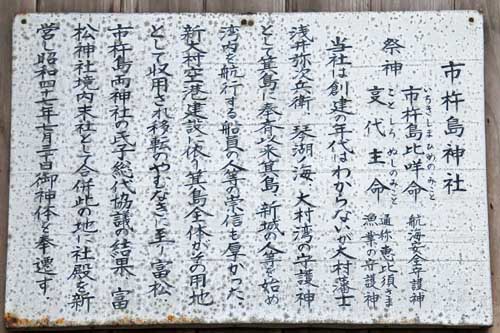 市杵島神社
祭神
いちきしまひめのみこと
市杵島比咩命 航海安全守護神
ことしろぬしのみこと
事代主命 通称恵比須さま
漁業の守護神
当社は創建の年代はわからないが大村藩士
浅井弥次兵衛 琴湖ノ海 大村湾の守護神
として箕島に奉斎以来箕島、新城の人等を始め
湾内を航行する船員の人等の崇信も厚かった、
新大村空港建設に依り箕島全体がその用地
として収用され移転のやむなきに至り富松、
市杵島両神社の氏子総代協議の結果 富
松神社境内末社として合併此の地に社殿を新
営し昭和四十七年七月三十日御神体を奉遷す.